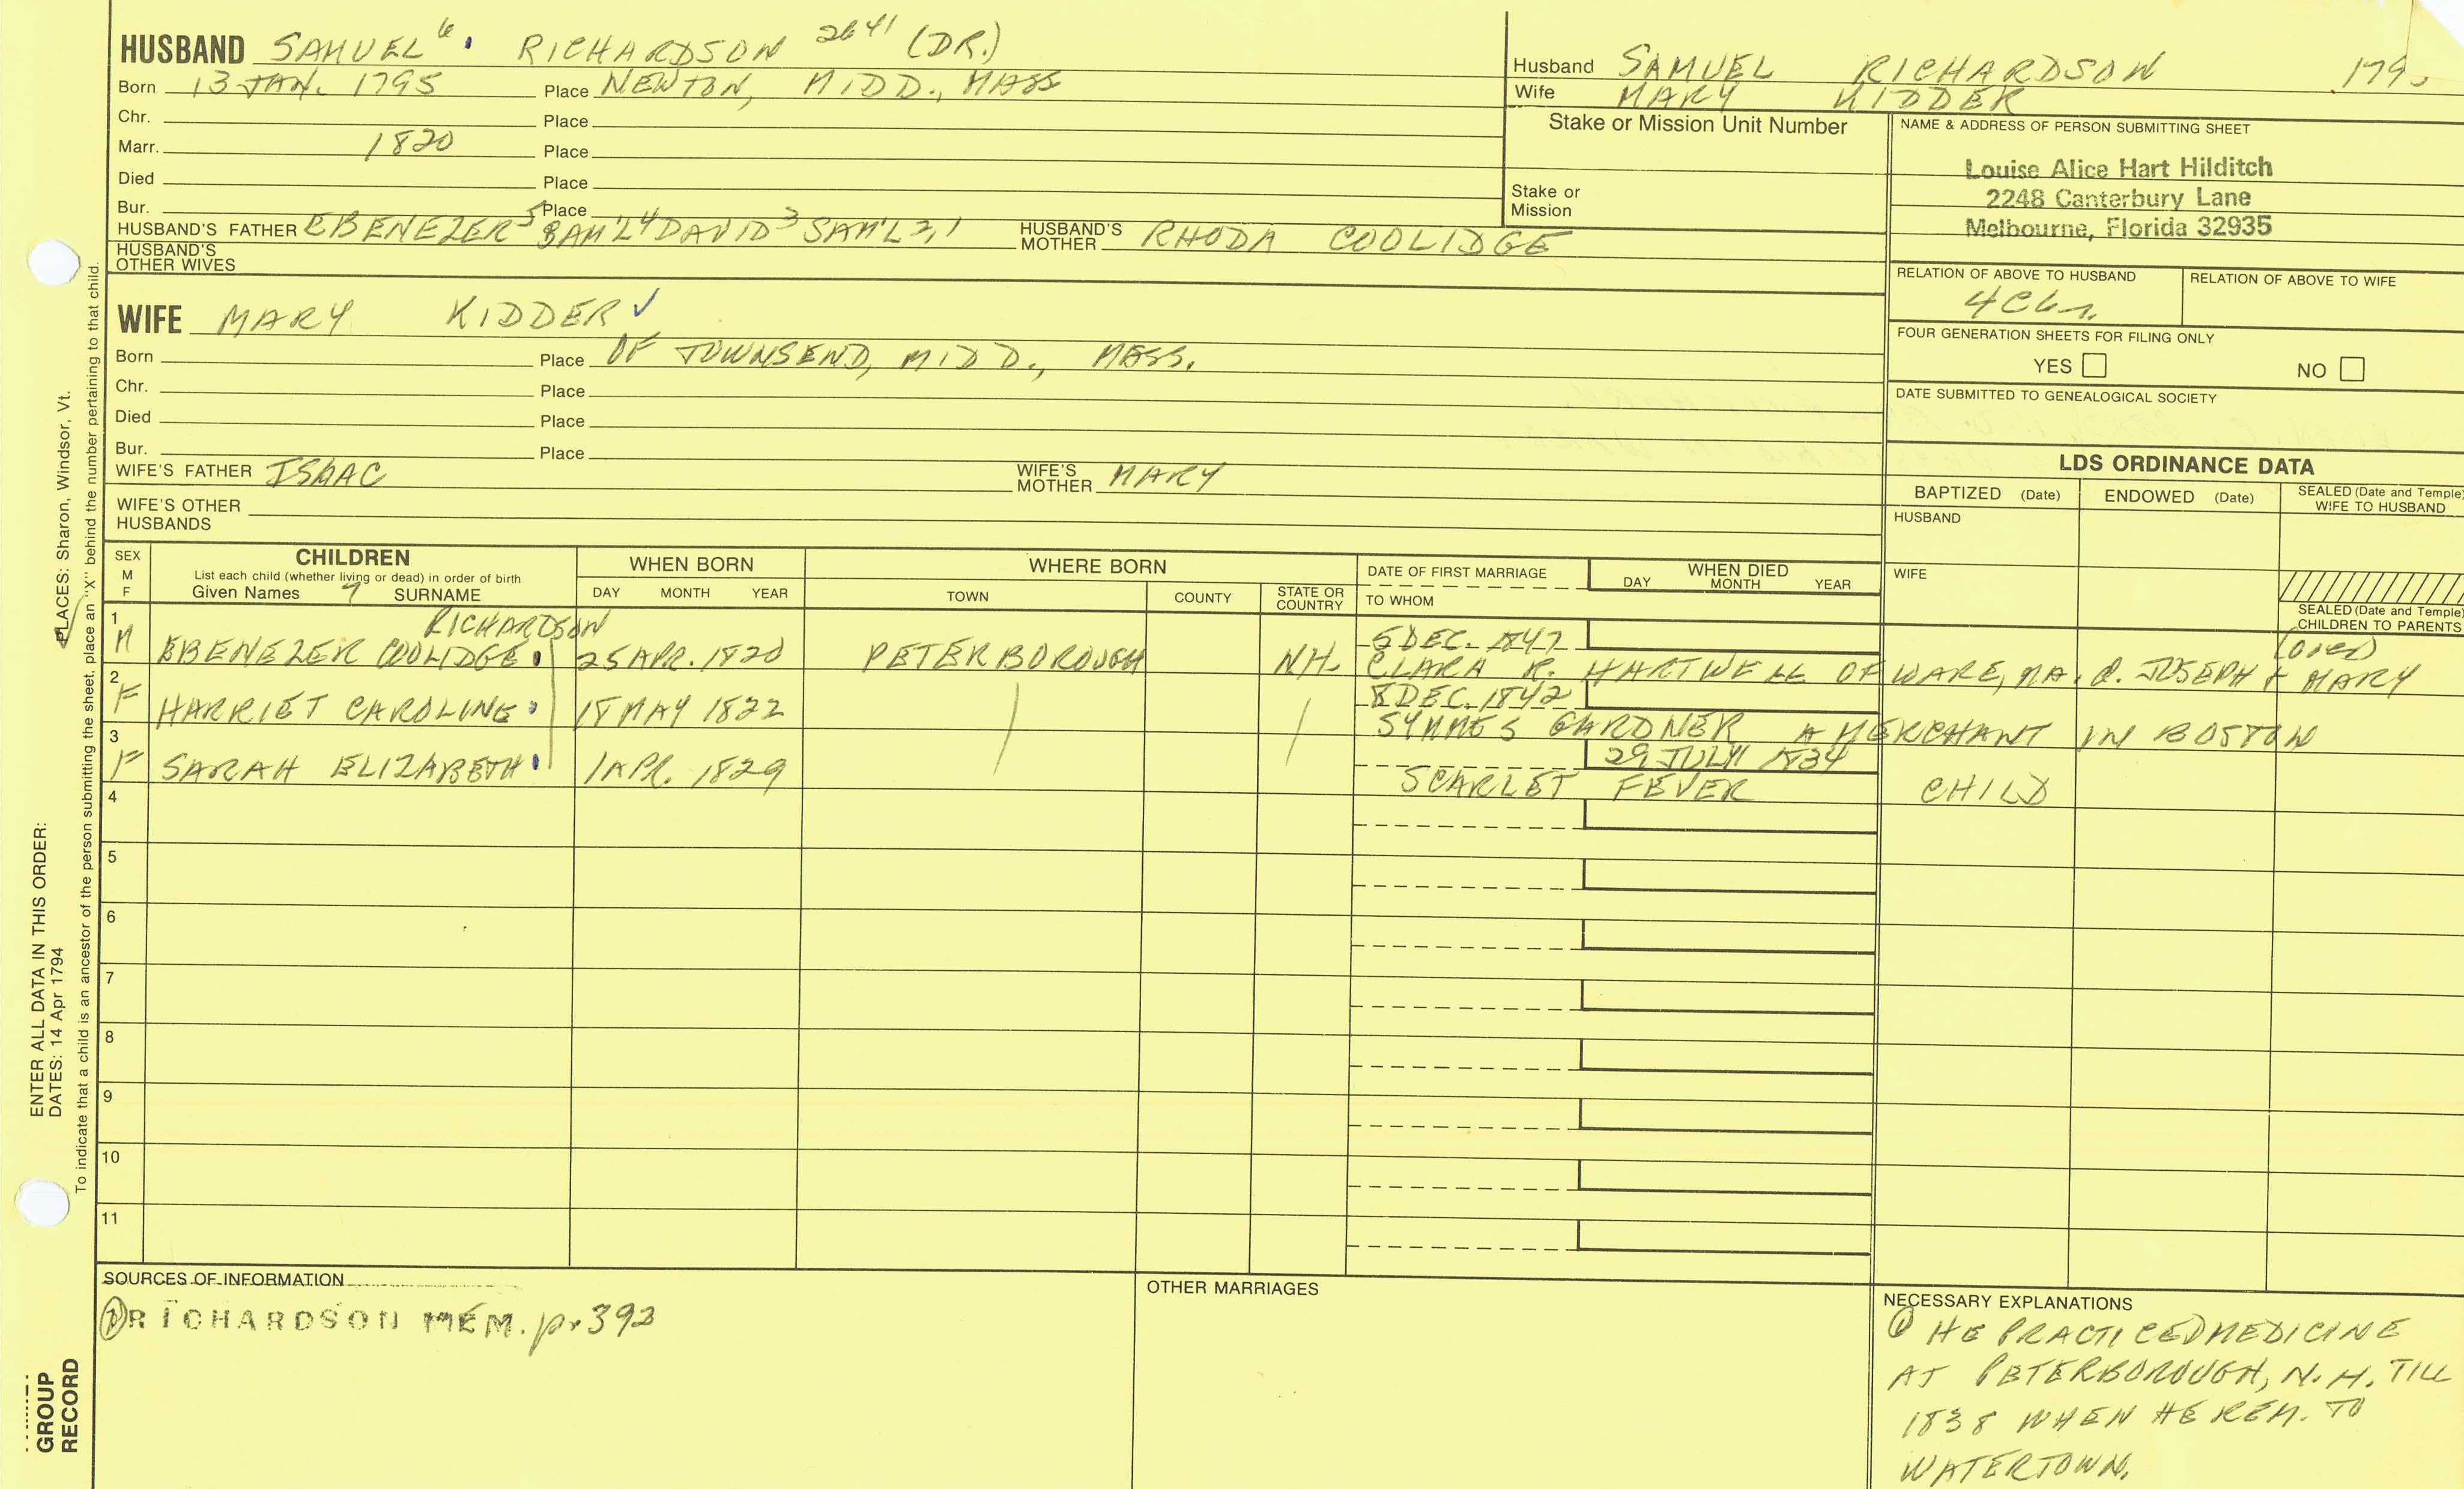 HUSBAND SAMUEL 6 RICHARDSON 2641 (DR.)
Born 13 JAN. 1795 Place NEWTON, MIDD., MASS
Chr. Place
Marr. 1820 Place
Died Place
Bur. Place
HUSBAND'S FATHER EBENEZER5 SAM'L4 DAVID3 SAM'L2,1 HUSBAND'S MOTHER RHODA COOLIDGE
HUSBAND'S OTHER WIVES
Husband SAMUEL RICHARDSON 179
Wife MARY KIDDER
Stake or Mission Unit Number
Stake or Mission
NAME & ADDRESS OF PERSON SUBMITTING SHEET
Louise Alice Hart Hilditch
2248 Canterbury Lane
Melbourne, Florida 32935
RELATION OF ABOVE TO HUSBAND RELATION OF ABOVE TO WIFE
FOUR GENERATION SHEETS FOR FILING ONLY
YES NO
DATE SUBMITTED TO GENEALOGICAL SOCIETY
WIFE MARY KIDDER ✓
Born Place OF TOWNSEND, MIDD., MASS.
Chr. Place
Died Place
Bur. Place
WIFE'S FATHER ISAAC WIFE'S MOTHER MARY
WIFE'S OTHER HUSBANDS
LDS ORDINANCE DATA
BAPTIZED (Date) ENDOWED (Date) SEALED (Date and Temple) WIFE TO HUSBAND
HUSBAND
WIFE
SEALED (Date and Temple) CHILDREN TO PARENTS
SEX M F
CHILDREN
List each child (whether living or dead) in order of birth
Given Names 7 SURNAME
WHEN BORN
DAY MONTH YEAR
WHERE BORN
TOWN COUNTY STATE OR COUNTRY
DATE OF FIRST MARRIAGE
TO WHOM
WHEN DIED
DAY MONTH YEAR
RICHARDSON
1 M EBENEZER COOLIDGE 25 APR. 1820 PETERBOROUGH NH. 5 DEC. 1847
CLARA R. HARTWELL OF WARE, MA. d. JOSEPH & MARY
2 F HARRIET CAROLINE 18 MAY 1822 8 DEC. 1842
SYMMES GARDNER A MERCHANT IN BOSTON
3 F SARAH ELIZABETH 1 APR. 1829 29 JULY 1834
SCARLET FEVER CHILD
4
5
6
7
8
9
10
11
SOURCES OF INFORMATION
① RICHARDSON MEM. p. 392
OTHER MARRIAGES
NECESSARY EXPLANATIONS
① HE PRACTICED MEDICINE
AT PETERBOROUGH, N.H. TILL
1838 WHEN HE REM. TO
WATERTOWN.
ENTER ALL DATA IN THIS ORDER:
DATES: 14 Apr 1794
PLACES: Sharon, Windsor, Vt.
To indicate that a child is an ancestor of the person submitting the sheet, place an "X" behind the number pertaining to that child.
GROUP
RECORD